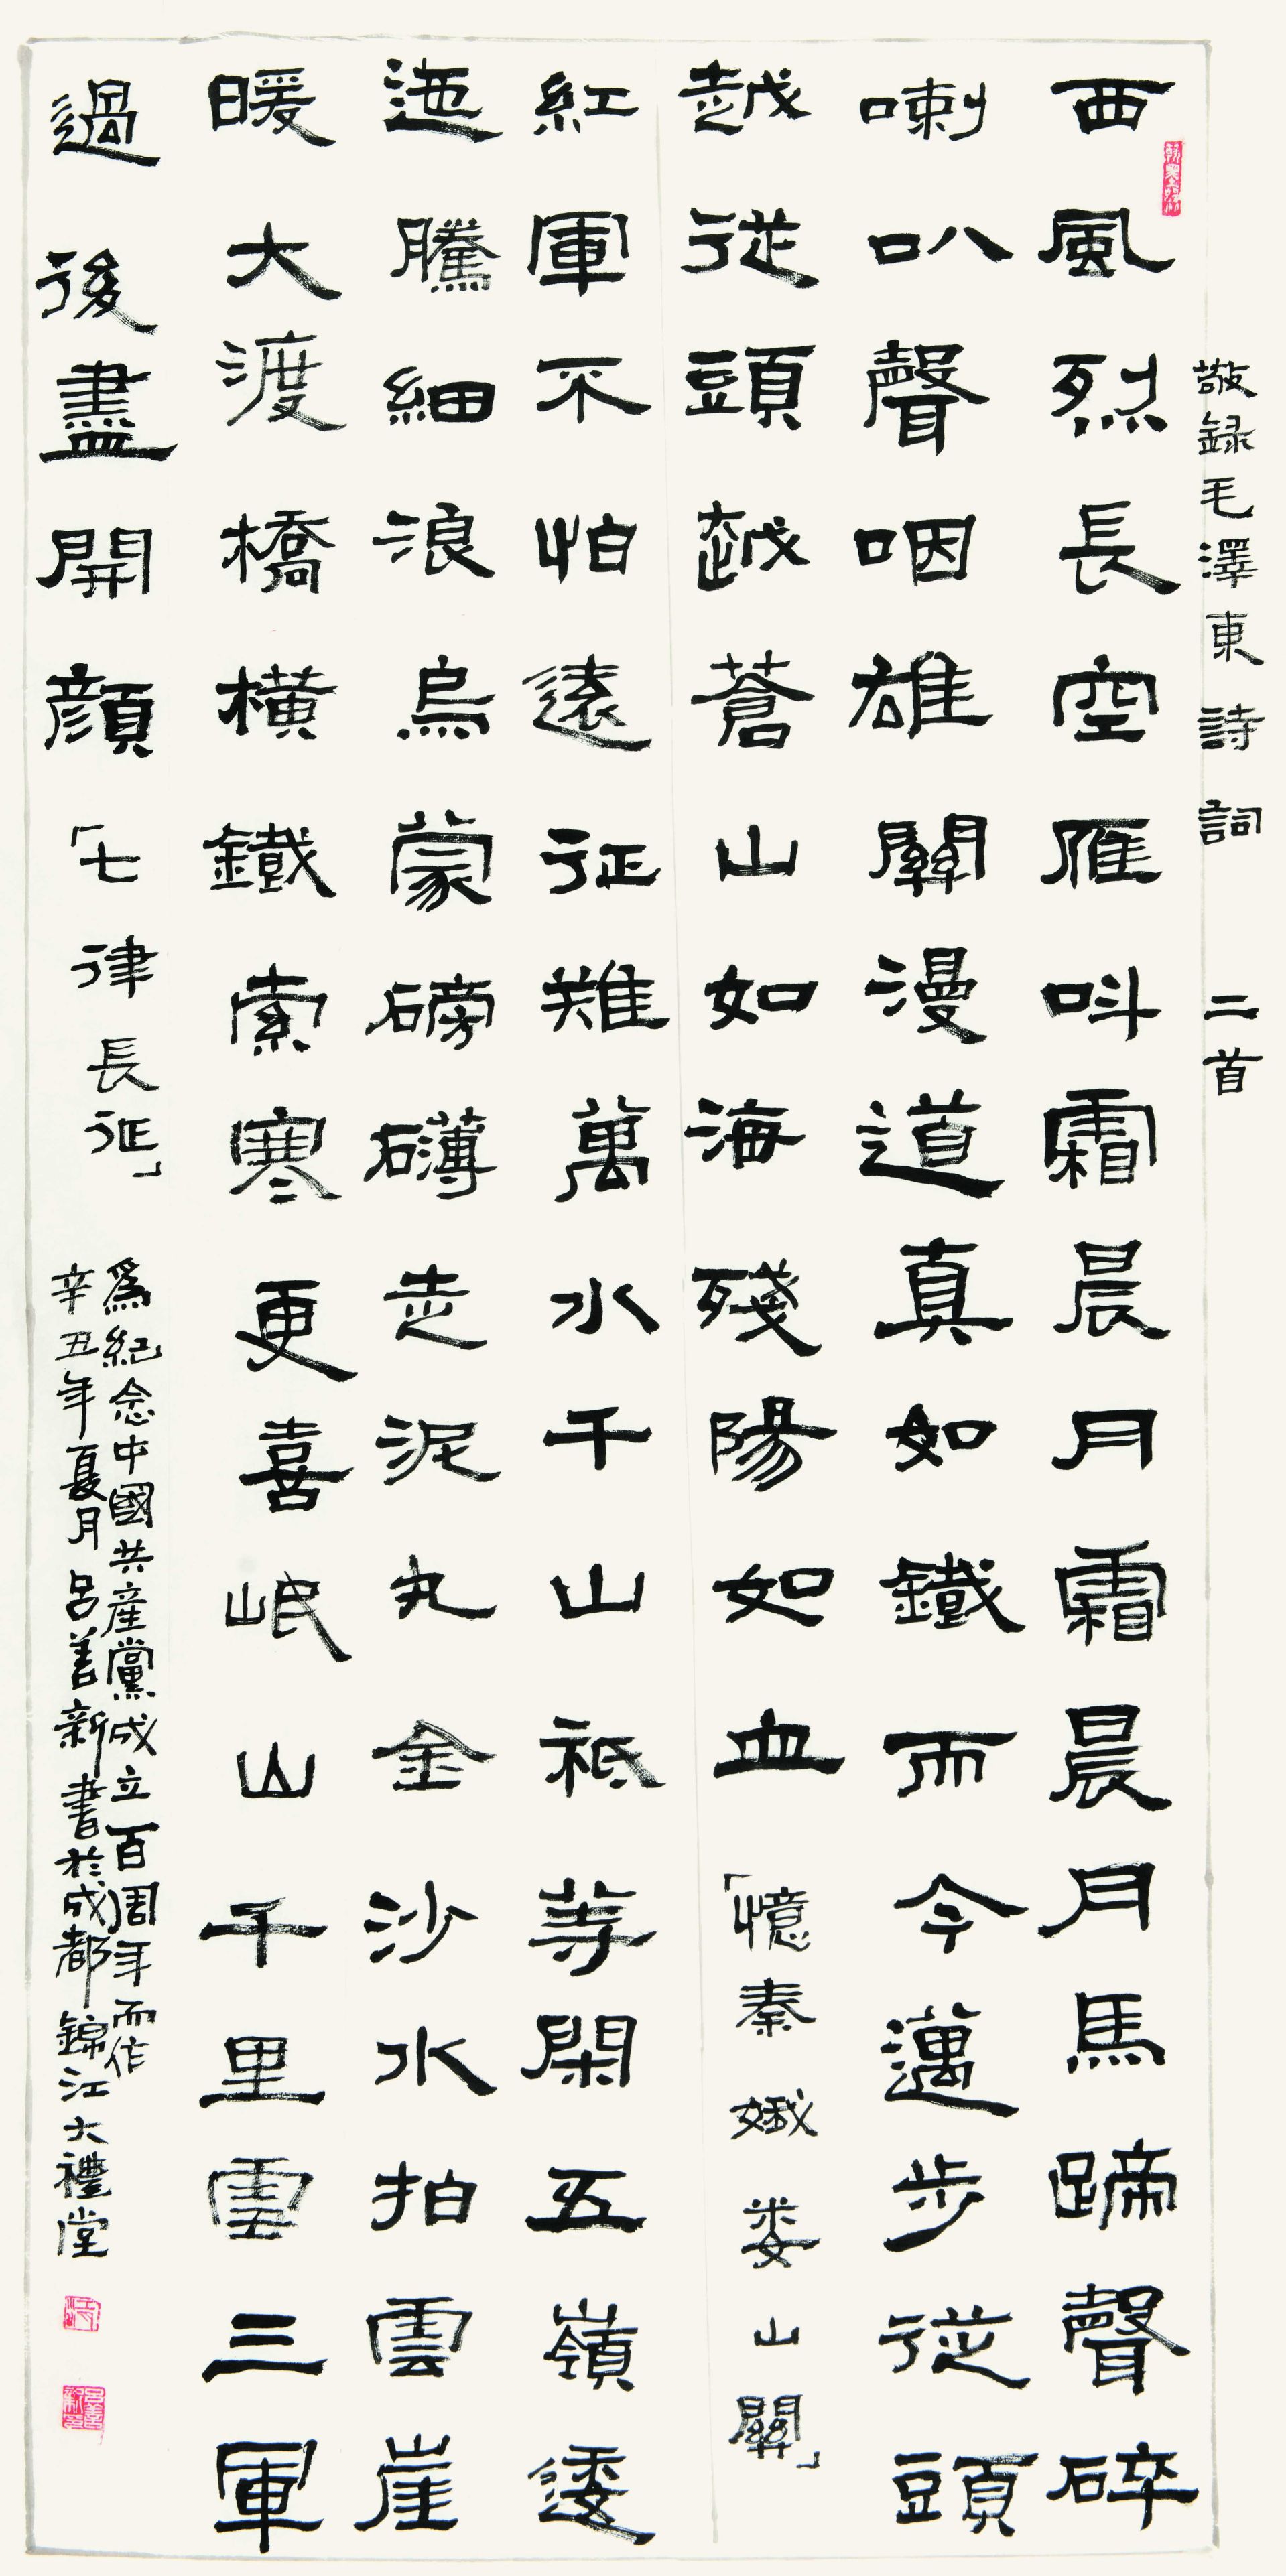 敬録毛澤東詩詞 二首
西風烈長空雁呌霜晨月霜晨月馬蹄聲碎
喇叭聲咽雄關漫道真如鐵而今邁步従頭
越従頭越蒼山如海殘陽如血「憶秦娥婁山關」
紅軍不怕遠征難萬水千山祗等閑五嶺逶
迤騰細浪烏蒙磅礴走泥丸金沙水拍雲崖
暖大渡橋橫鐵索寒更喜岷山千里雪三軍
過後盡開顔「七律長征」
為紀念中國共産黨成立百周年而作
辛丑年夏月呂善新書於成都錦江大禮堂